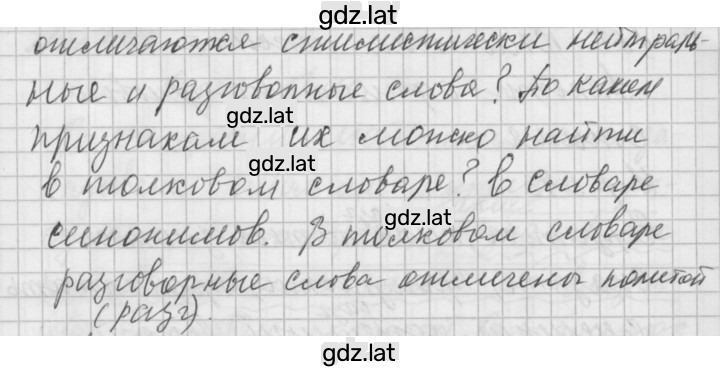 gdz.lat
отличаются стилистически нейтраль-
ные и разговорные слова? По каким
gdz.lat
признакам их можно найти
gdz.lat
в толковом словаре? в словаре
gdz.lat
синонимов. В толковом словаре
разговорные слова отмечены пометой
(разг).
gdz.lat